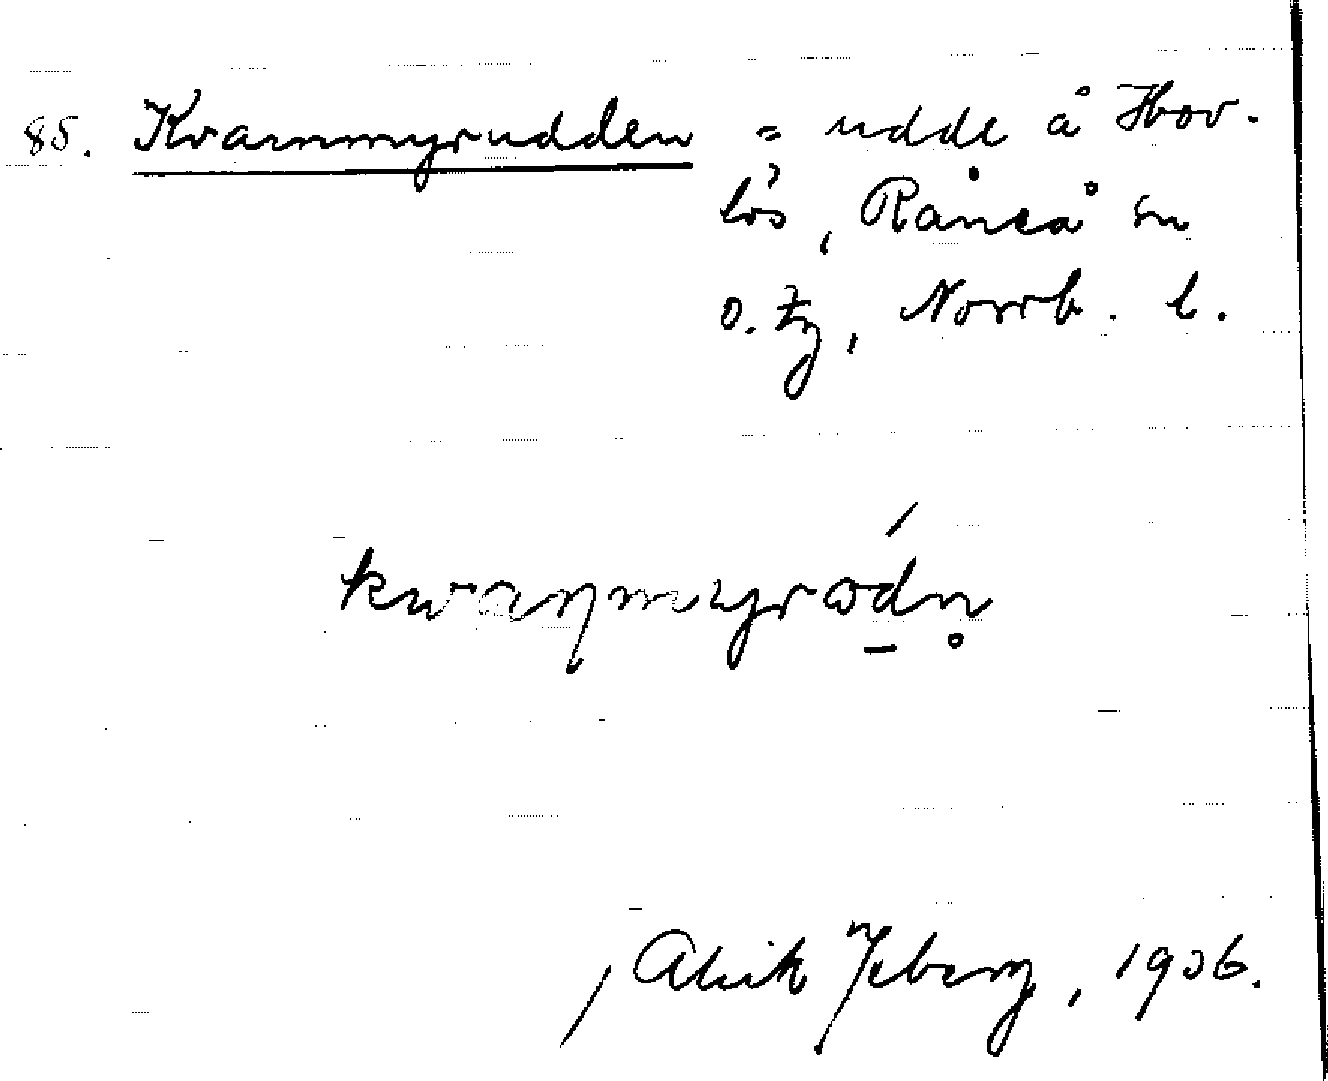 85. Kvarnmyrudden = udde å Hov-
lös, Råneå sn
o. tg, Norrb. l.
kwaɳmyrωdn̥
Alrik Yberg, 1906.